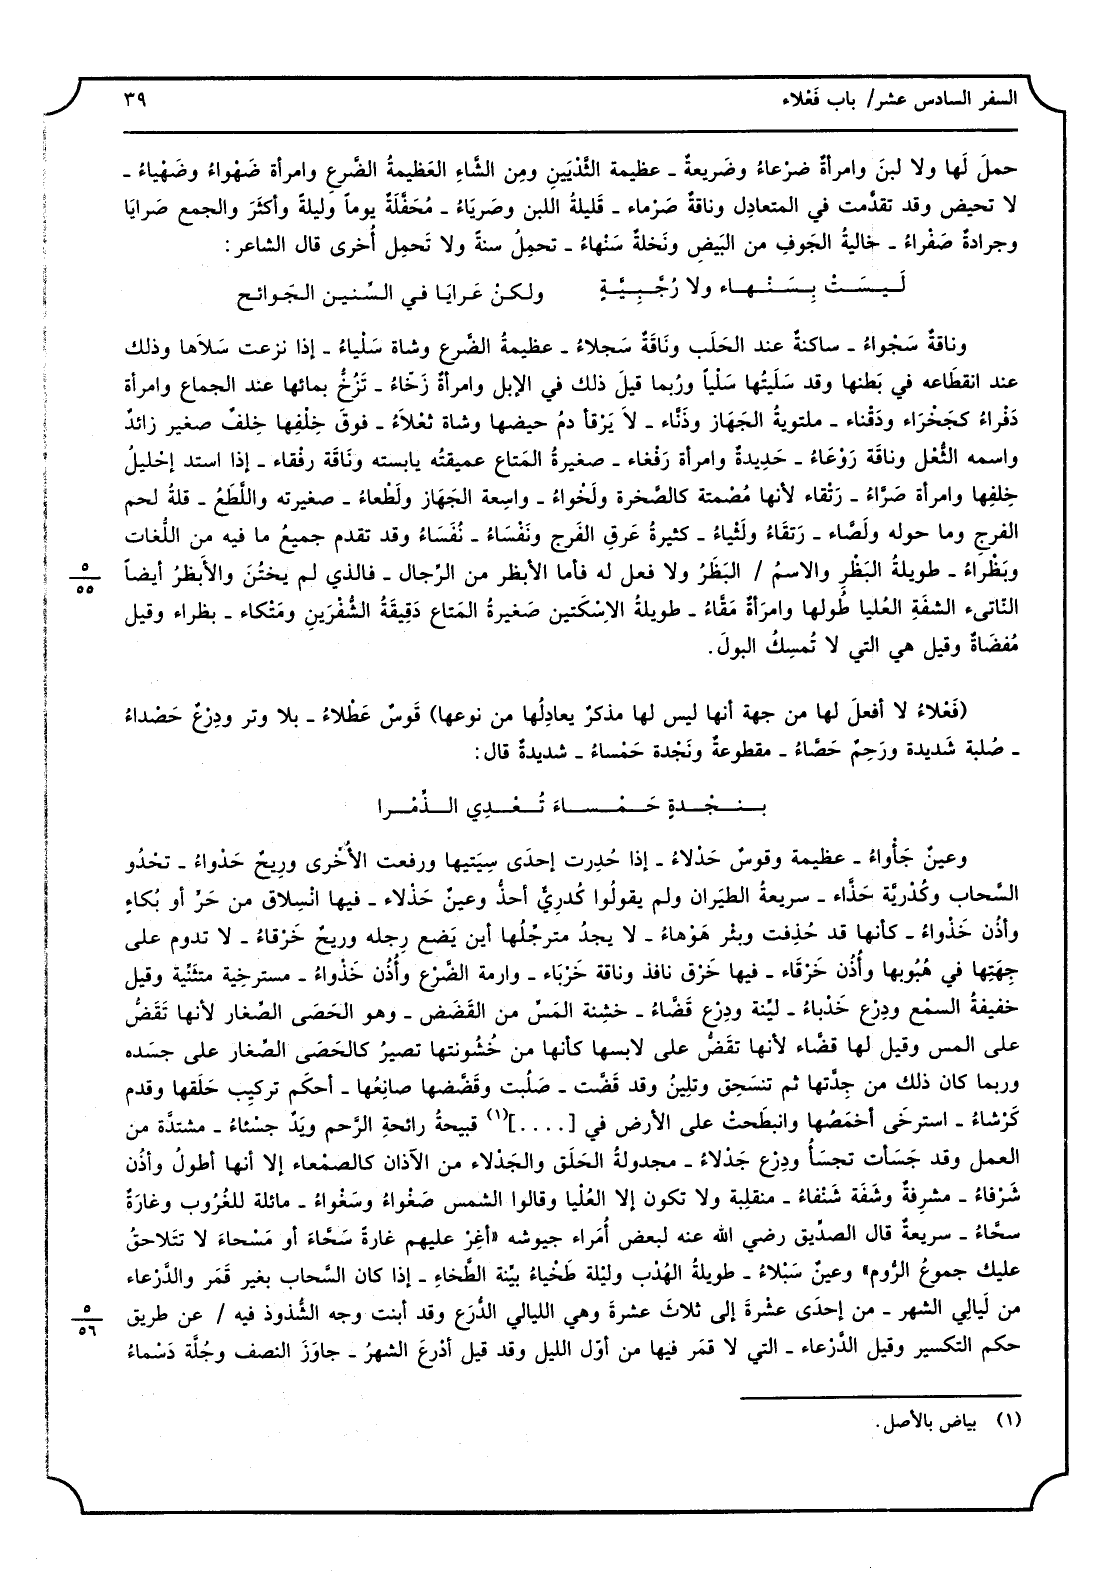 السفر السادس عشر/ باب فَعْلاء
٣٩
حملَ لَها ولا لبنَ وامرأةٌ ضرْعاءُ وضَريعةٌ ـ عظيمة الثَّدْيَينِ ومِن الشَّاءِ العَظيمةُ الضَّرع وامرأة ضَهْواءُ وضَهْياءُ ـ
لا تحيض وقد تقدَّمت في المتعادِل وناقةٌ صَرْماء ـ قَليلةُ اللبن وصَريَاءُ ـ مُحَفَّلَةٌ يوماً وليلةً وأكثَرَ والجمع صَرايَا
وجرادةٌ صَفْراءُ ـ خاليةُ الجَوفِ من البَيضِ ونَخلةٌ سَنْهاءُ ـ تحمِلُ سنةً ولا تَحمِل أُخرى قال الشاعر:
لَـيـسَـتْ بِـسَـنْـهـاء ولا رُجَّـبِـيَّـةٍ
ولكنْ عَرايَا في السِّنينِ الجَوائح
وناقةٌ سَجْواءُ ـ ساكنةٌ عند الحَلَب ونَاقَةٌ سَجلاءُ ـ عظيمةُ الضَّرع وشاة سَلْياءُ ـ إذا نزعت سَلاَها وذلك
عند انقطَاعه في بَطنها وقد سَلَيتُها سَلْياً ورُبما قيلَ ذلك في الإبل وامرأةٌ زَخَّاءُ ـ تَزُخُّ بمائها عند الجماع وامرأة
دَفْراءُ كجَخْرَاء ودَقْناء ـ ملتويةُ الجَهَاز وذَنَّاء ـ لاَ يَرْقأ دمُ حيضها وشاة ثعْلاَءُ ـ فوقَ خِلْفِها خِلفٌ صغير زائدٌ
واسمه الثُّعْل وناقَة رَوْعَاءُ ـ حَدِيدةٌ وامرأة رَفْغاء ـ صغيرةُ المَتاع عميقتُه يابسته ونَاقَة رفْقاء ـ إذا استد إحْليلُ
خِلفِها وامرأة صَرَّاءُ ـ رَتْقاء لأنها مُصْمتة كالصَّخرة ولَخْواءُ ـ واسِعة الجَهَاز ولَطْعاءُ ـ صغيرته واللَّطَعُ ـ قلةُ لحم
الفرج وما حوله ولَصَّاء ـ رَتقَاءُ ولَثْياءُ ـ كثيرةُ عَرقِ الفَرج ونَفْسَاءُ ـ نُفَسَاءُ وقد تقدم جميعُ ما فيه من اللُّغات
وبَظْراءُ ـ طويلةُ البَظْرِ والاسمُ / البَظَرُ ولا فعل له فأما الأبظر من الرِّجال ـ فالذي لم يختُن والأَبظرُ أيضاً
٥
٥٥
النَّاتىء الشفَةِ العُليا طُولها وامرَأةٌ مَقَّاءُ ـ طويلةُ الاِسْكَتين صَغيرةُ المَتاع دَقِيقَةُ الشُّفْرَينِ ومَتْكاء ـ بظراء وقيل
مُفضَاةٌ وقيل هي التي لا تُمسِكُ البولَ.
(فَعْلاءُ لا أفعلَ لها من جهة أنها ليس لها مذكرٌ يعادِلُها من نوعها) قَوسٌ عَطْلاءُ ـ بلا وتر ودِرْعٌ حَصْداءُ
ـ صُلبة شَديدة ورَحِمٌ حَصَّاءُ ـ مقطوعةٌ ونَجْدة حَمْساءُ ـ شديدةٌ قال:
بـنـجْـدةٍ حَـمْـسـاءَ تُـعْـدِي الـذِّمْـرا
وعينٌ جَأْواءُ ـ عظيمة وقوسٌ حَدْلاءُ ـ إذا حُدِرت إحدَى سِيَتيها ورفعت الأُخْرى ورِيحٌ حَدْواءُ ـ تحْدُو
السَّحاب وكُدْريَّة حَذَّاء ـ سريعةُ الطيَران ولم يقولُوا كُدرِيٌّ أحذُّ وعينٌ حَذْلاء ـ فيها انْسِلاق من حَرٍّ أو بُكاءٍ
وأذُن خَذْواءُ ـ كأنها قد حُذِفت وبئْر هَوْهاءُ ـ لا يجدُ مترجِّلُها أين يَضع رِجله وريحٌ خَرْقاءُ ـ لا تدوم على
جِهَتِها في هُبُوبها وأُذُن خَرْقَاء ـ فيها خَرْق نافذ وناقة خَرْبَاء ـ وارمة الضَّرْع وأُذُن خَذْواءُ ـ مسترخِية متثَنِّية وقيل
خفيفةُ السمْع ودِرْع خَدْباءُ ـ ليِّنة ودِرْع قَضَّاءُ ـ خشِنة المَسِّ من القَضَض ـ وهو الحَصَى الصِّغار لأنها تَقَضُّ
على المس وقيل لها قضَّاء لأنها تقَضُّ على لابسها كأنها من خُشُونتها تصيرُ كالحَصَى الصِّغار على جسَده
وربما كان ذلك من جِدَّتها ثم تنسَحِق وتلِينُ وقد قَضَّت ـ صَلُبت وقَضَّضها صانِعُها ـ أحكَم تركيب حَلَقها وقدم
كَرْشاءُ ـ استرخَى أخمَصُها وانبطَحتْ على الأرض في [....](١) قبيحةُ رائحةِ الرَّحم ويَدٌ جسْئاءُ ـ مشتدَّة من
العمل وقد جَسَأت تجسَأُ ودِرْع جَدْلاءُ ـ مجدولةُ الحَلَق والجَدْلاء من الآذان كالصمْعاء إلا أنها أطولُ وأذُن
شَرْفاءُ ـ مشرِفةٌ وشَفَة شَنْفاءُ ـ منقلِبة ولا تكون إلا العُلْيا وقالوا الشمس صَغْواءُ وسَغْواءُ ـ مائلة للغُرُوب وغارَةٌ
سحَّاءُ ـ سريعةٌ قال الصدِّيق رضي الله عنه لبعض أُمَراء جيوشه «أغِرْ عليهم غارةً سَحَّاءَ أو مَسْحاءَ لا تتَلاحقُ
عليك جموعُ الرُّوم» وعينٌ سَبْلاءُ ـ طويلةُ الهُدْب وليْلة طَخْياءُ بيِّنة الطَّخاءِ ـ إذا كان السَّحاب بغير قَمَر والدَّرْعاء
من لَيالِي الشهر ـ من إحدَى عشْرةَ إلى ثلاثَ عشرةَ وهي الليالي الدُّرَع وقد أبنت وجه الشُّذوذ فيه / عن طريق
٥
٥٦
حكم التكسير وقيل الدَّرْعاء ـ التي لا قمَر فيها من أوّل الليل وقد قيل أدْرعَ الشهرُ ـ جاوَزَ النصف وجُلَّة دَسْماءُ
(١) بياض بالأصل.